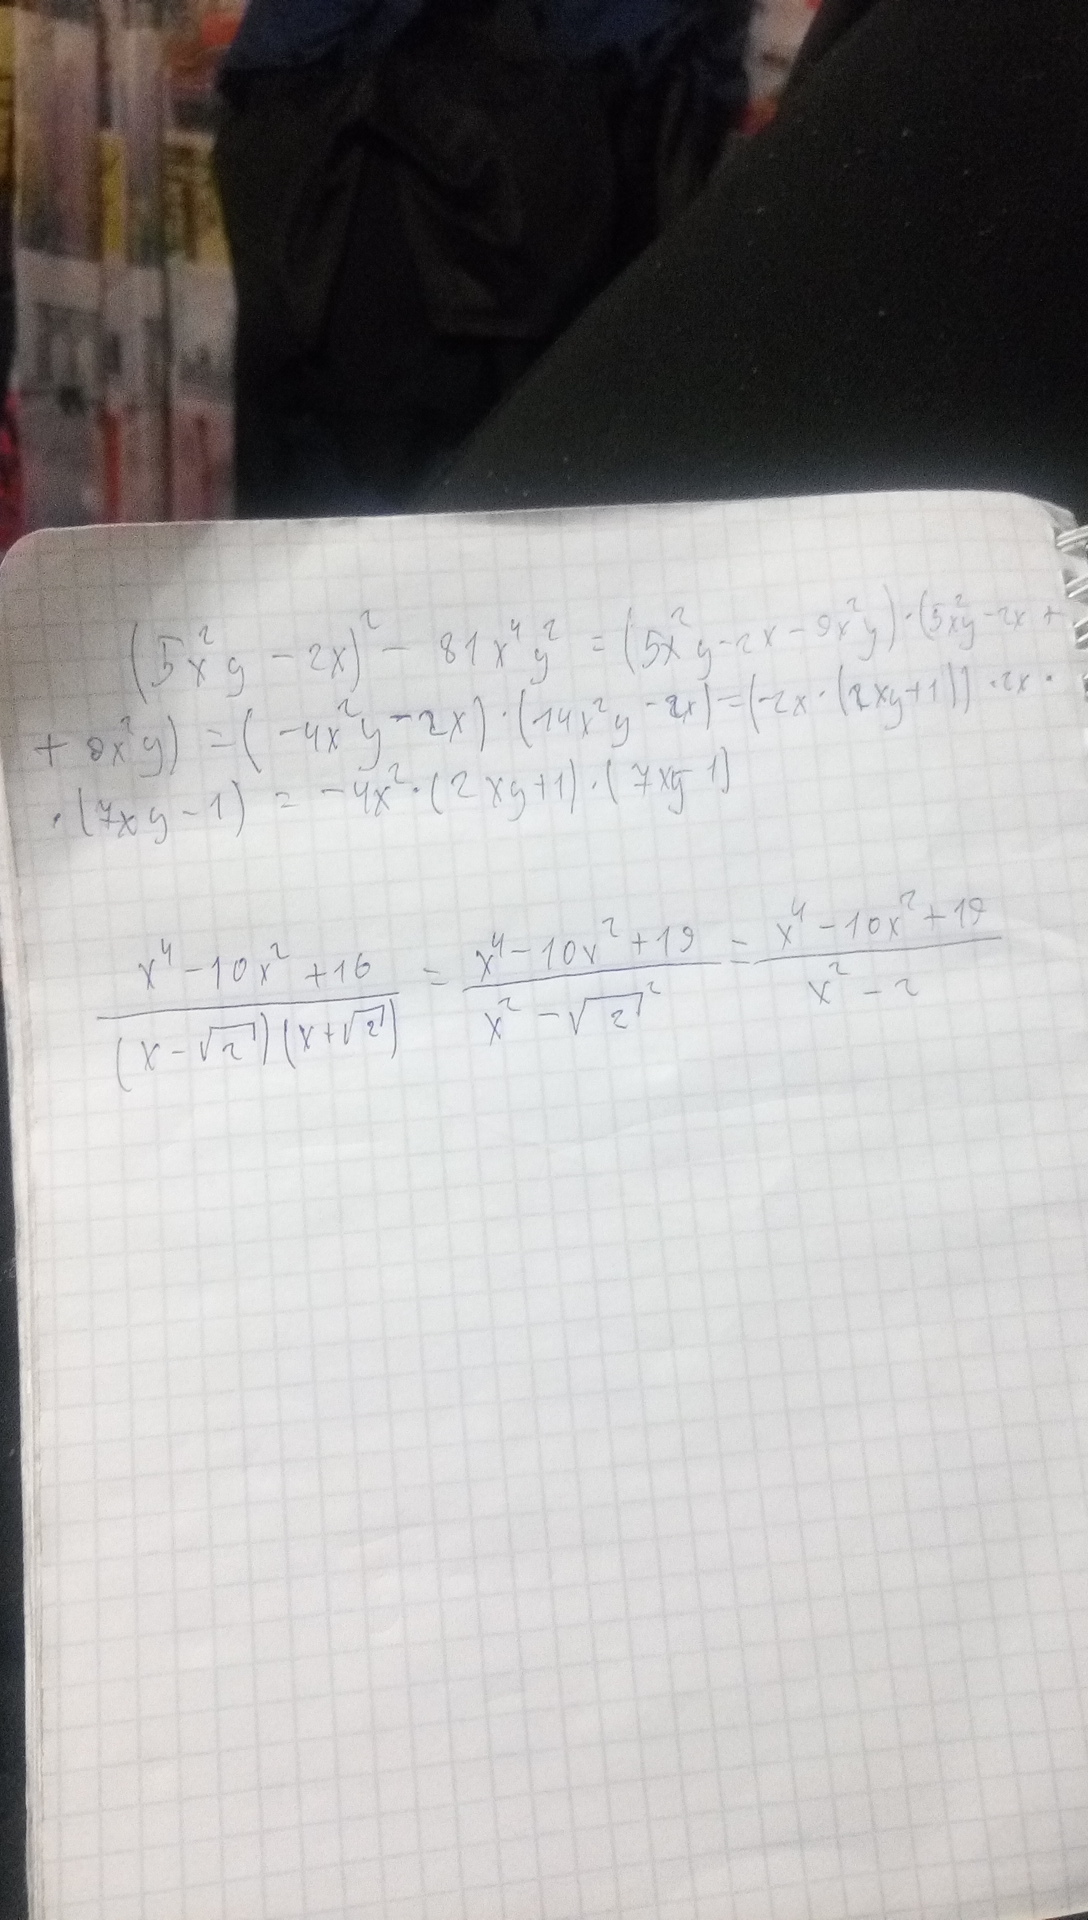 (5x²y - 2x)² - 81x⁴y² = (5x²y - 2x - 9x²y)·(5x²y - 2x +
+ 9x²y) = (-4x²y - 2x)·(14x²y - 2x) = (-2x·(2xy+1))·2x·
·(7xy - 1) = -4x²·(2xy+1)·(7xy-1)
(x⁴ - 10x² + 16)/((x-√2)(x+√2)) = (x⁴ - 10x² + 19)/(x² - √2²) = (x⁴ - 10x² + 19)/(x² - 2)